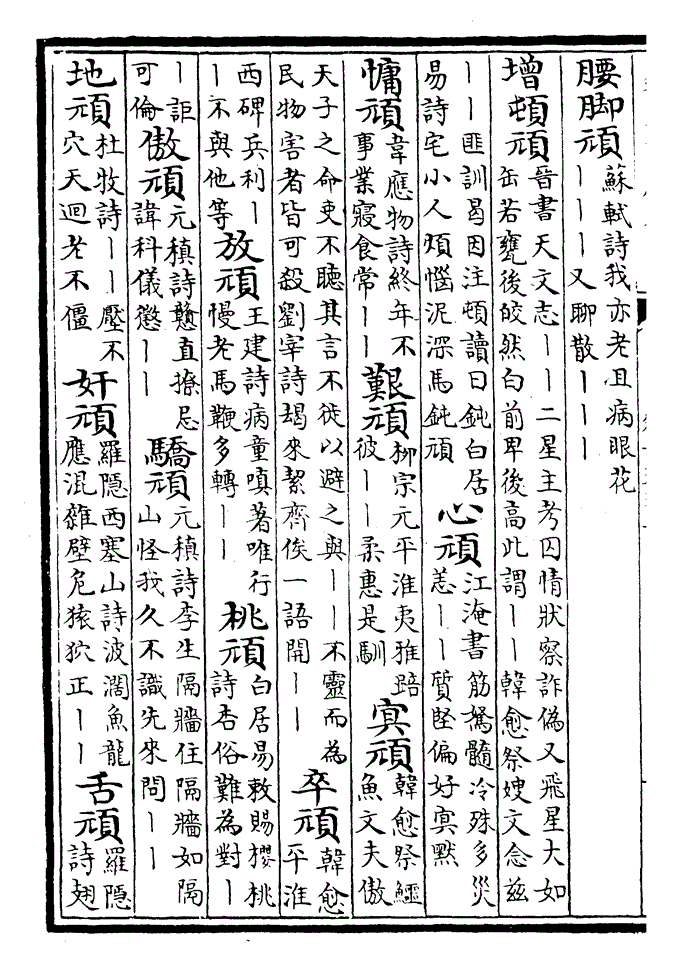 腰脚頑
蘇軾詩我亦老且病眼花
丨丨丨又聊散丨丨丨
增頓頑
晉書天文志丨丨二星主考囚情狀察詐偽又飛星大如
缶若甕後皎然白前卑後高此謂丨丨韓愈祭嫂文念兹
丨丨匪訓曷因注頓讀曰鈍白居
易詩宅小人煩惱泥深馬鈍頑
心頑
江淹書筋駑髓冷殊多災
恙丨丨質堅偏好㝠默
慵頑
韋應物詩終年不
事業寢食常丨丨
艱頑
柳宗元平淮夷雅踣
彼丨丨柔惠是馴
㝠頑
韓愈祭鱷
魚文夫傲
天子之命吏不聽其言不徙以避之與丨丨不靈而為
民物害者皆可殺劉宰詩朅來絜齊俟一語開丨丨
卒頑
韓愈
平淮
西碑兵利丨
丨不與他等
放頑
王建詩病童嗔著唯行
慢老馬鞭多轉丨丨
桃頑
白居易敕賜櫻桃
詩杏俗難為對丨
丨詎
可倫
傲頑
元稹詩戇直撩忌
諱科儀懲丨丨
驕頑
元稹詩李生隔牆住隔牆如隔
山怪我久不識先來問丨丨
地頑
杜牧詩丨丨壓不
穴天迴老不僵
奸頑
羅隱西塞山詩波濶魚龍
應混雜壁危猿狖正丨丨
舌頑
羅隱
詩翅